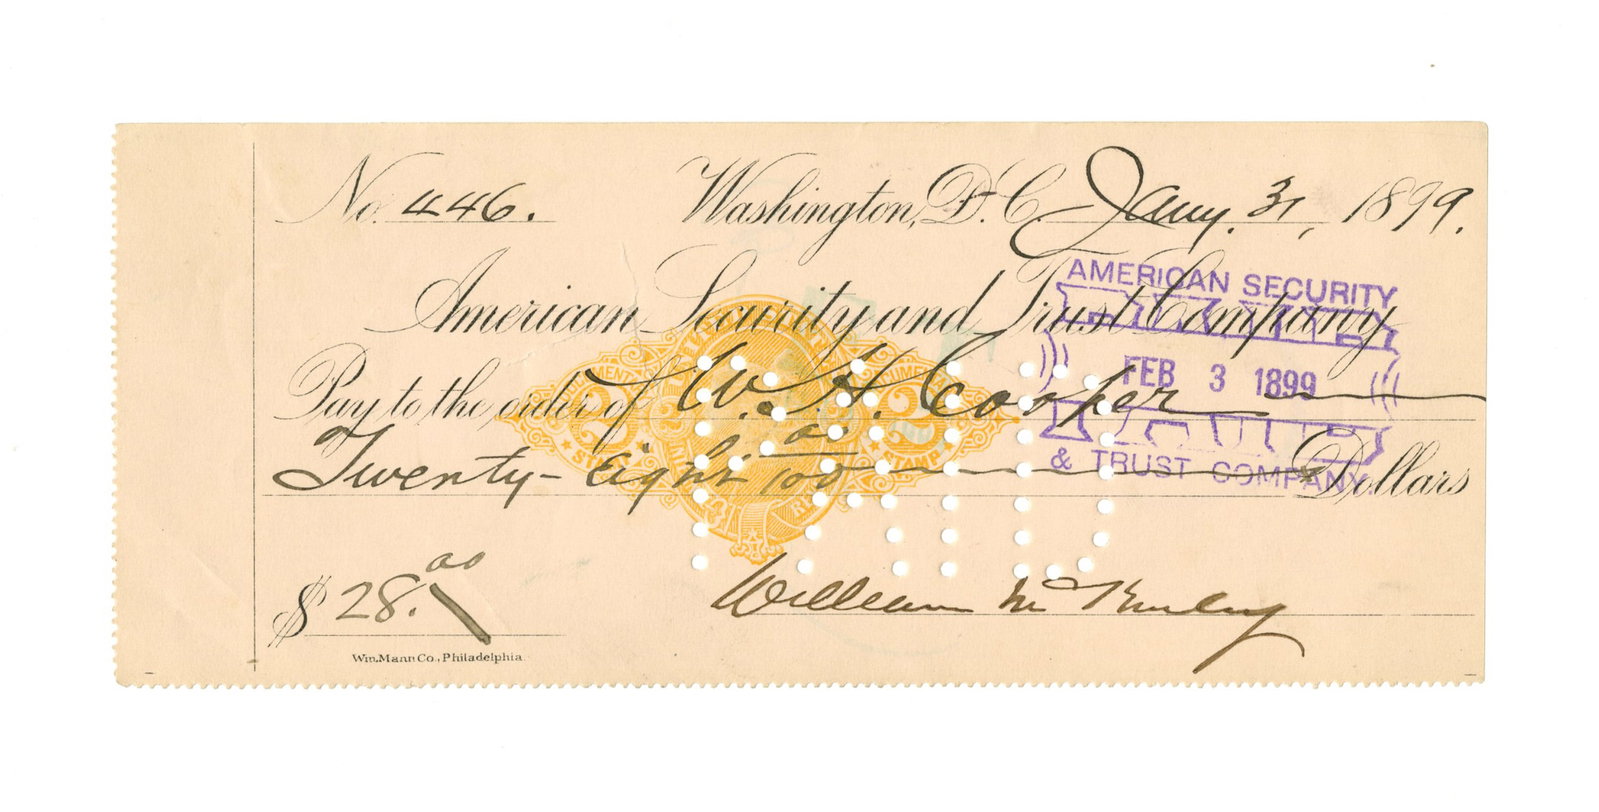 No. 446. Washington, D.C. Jany. 31, 1899.
American Security and Trust Company
Pay to the order of W. H. Cooper
Twenty-Eight 00/100 Dollars
$ 28.00
William McKinley
Wm. Mann Co., Philadelphia.
AMERICAN SECURITY
PAID
FEB 3 1899
PAID
& TRUST COMPANY
DOCUMENTARY
2
STAMP
2
PAID